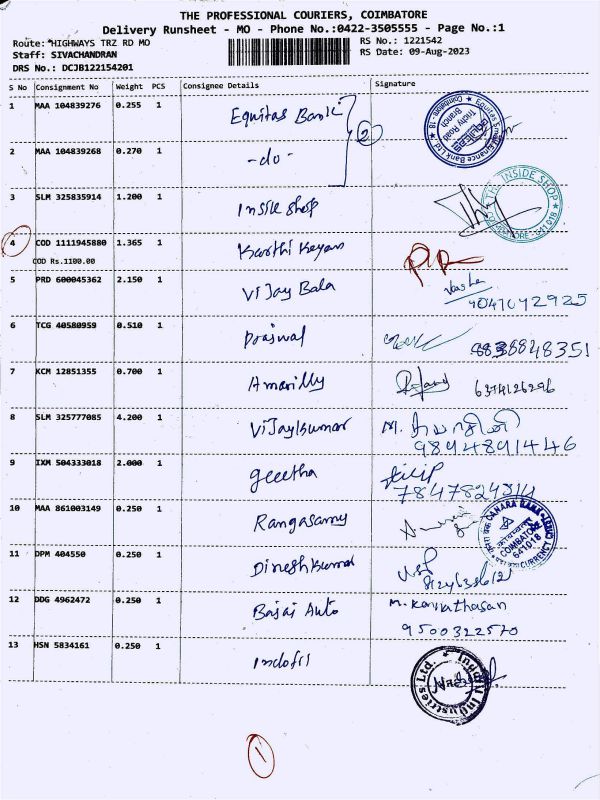 THE PROFESSIONAL COURIERS, COIMBATORE
Delivery Runsheet - MO - Phone No.:0422-3505555 - Page No.:1
Route: *HIGHWAYS TRZ RD MO
RS No.: 1221542
Staff: SIVACHANDRAN
RS Date: 09-Aug-2023
DRS No.: DCJB122154201
S No Consignment No Weight PCS Consignee Details Signature
1 MAA 104839276 0.255 1 Equitas Bank
2
2 MAA 104839268 0.270 1 -do-
3 SLM 325835914 1.200 1 Inside shop
THE INSIDE SHOP
COIMBATORE - 641 018
4 COD 1111945880 1.365 1 Karthi Keyan
COD Rs.1100.00
5 PRD 600045362 2.150 1 Vijay Bala
6 TCG 40580959 0.510 1 Prajwal
8838848351
7 KCM 12851355 0.700 1 Amarilly
6374126296
8 SLM 325777085 4.200 1 Vijaykumar M.
9894891446
9 IXM 504333018 2.000 1 geeetha
10 MAA 861003149 0.250 1 Rangasamy
CANARA BANK
COIMBATORE
641018
CURRENCY CHEST
11 DPM 404550 0.250 1 Dineshkumar
12 DDG 4962472 0.250 1 Bajaj Auto
9500322570
13 HSN 5834161 0.250 1 Indofil
Industries Ltd.
1